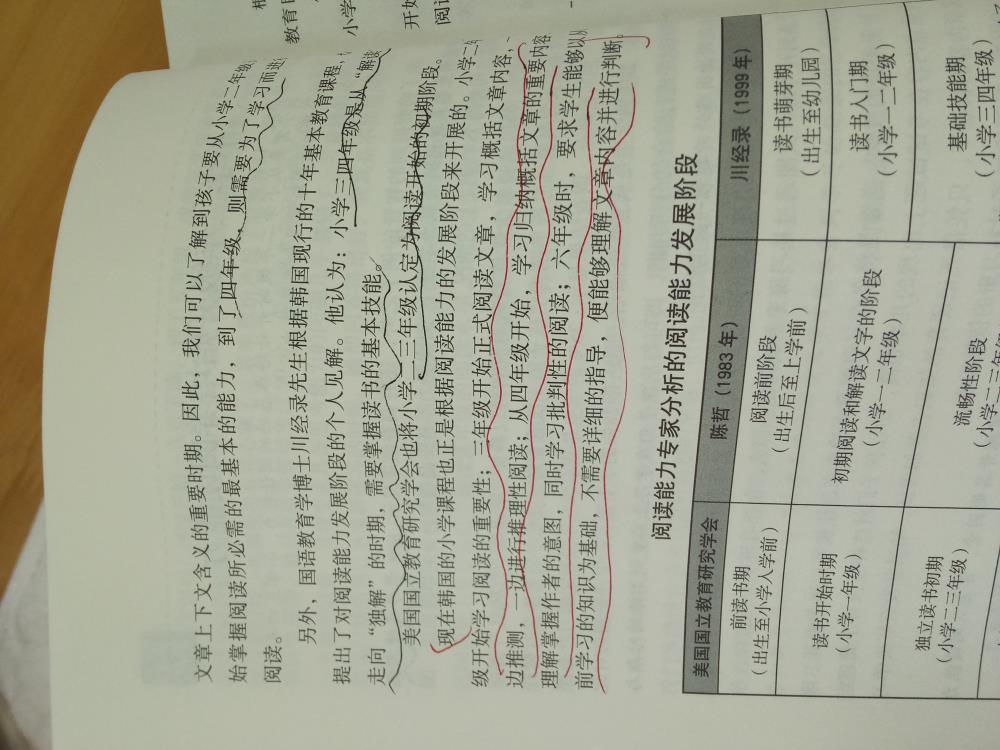 教育
小学
开始
阅读
文章上下文含义的重要时期。因此，我们可以了解到孩子要从小学二年级
始掌握阅读所必需的最基本的能力，到了四年级，则需要为了学习而进
阅读。
另外，国语教育学博士川经录先生根据韩国现行的十年基本教育课程，
提出了对阅读能力发展阶段的个人见解。他认为：小学三四年级是从“解读
走向“独解”的时期，需要掌握读书的基本技能。
美国国立教育研究学会也将小学二三年级认定为阅读开始的初期阶段。
现在韩国的小学课程也正是根据阅读能力的发展阶段来开展的。小学二年
级开始学习阅读的重要性；三年级开始正式阅读文章，学习概括文章内容，
边推测，一边进行推理性阅读；从四年级开始，学习归纳概括文章的重要内容
理解掌握作者的意图，同时学习批判性的阅读；六年级时，要求学生能够以
前学习的知识为基础，不需要详细的指导，便能够理解文章内容并进行判断。
阅读能力专家分析的阅读能力发展阶段
美国国立教育研究学会 陈哲（1983 年） 川经录（1999 年）
前读书期 阅读前阶段 读书萌芽期
（出生至小学入学前） （出生后至上学前） （出生至幼儿园）
读书开始时期 初期阅读和解读文字的阶段 读书入门期
（小学一年级） （小学一二年级） （小学一二年级）
独立读书初期 流畅性阶段 基础技能期
（小学二三年级） （小学二三年级 （小学三四年级）